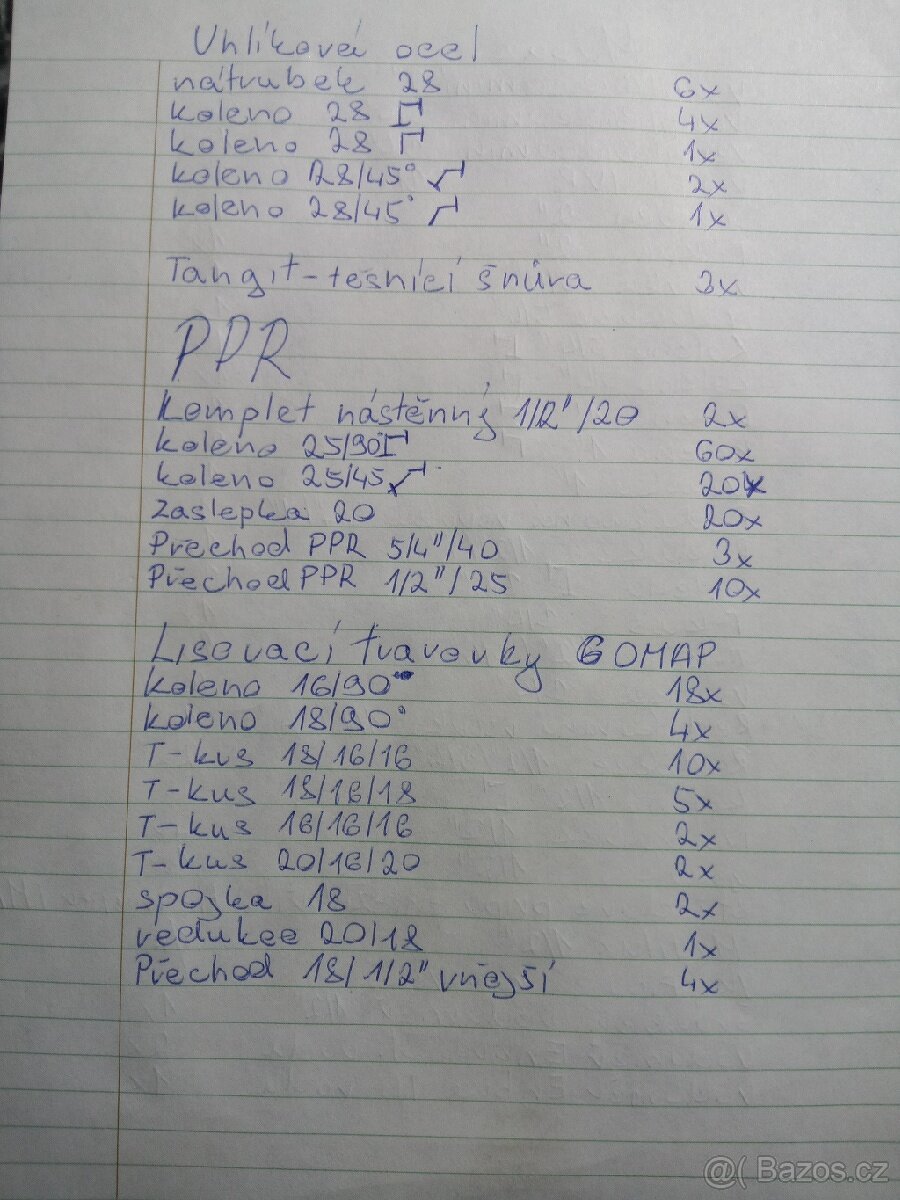 Uhlíková ocel
nátrubek 28 6x
koleno 28 4x
koleno 28 1x
koleno 28/45° 2x
koleno 28/45° 1x
Tangit-těsnící šnůra 3x
PPR
Komplet nástěnný 1/2"/20 2x
koleno 25/90 60x
koleno 25/45 20x
Zaslepka 20 20x
Přechod PPR 5/4"/40 3x
Přechod PPR 1/2"/25 10x
Lisovací tvarovky GOMAP
koleno 16/90° 18x
koleno 18/90° 4x
T-kus 18/16/16 10x
T-kus 18/16/18 5x
T-kus 16/16/16 2x
T-kus 20/16/20 2x
spojka 18 2x
redukce 20/18 1x
Přechod 18/1/2" vnější 4x
@( Bazos.cz